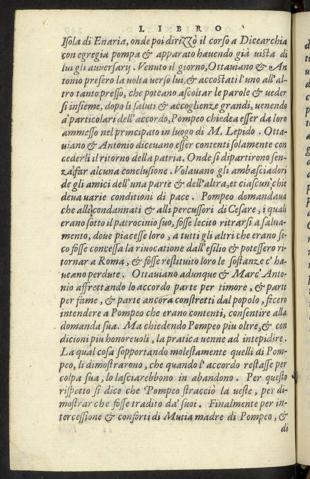 LIBRO
Isola di Enaria, onde poi dirizzò il corso a Dicearchia
con egregia pompa & apparato hauendo già uista di
lui gli auuersarij. Venuto il giorno, Ottauiano & An-
tonio presero la uolta uerso lui, & accostati l'uno all'al-
tro tanto presso, che poteano ascoltar le parole & ueder
si insieme, dopo li saluti & accoglienze grandi, uenendo
a' particolari dell'accordo, Pompeo chiedea esser da loro
ammesso nel principato in luogo di M. Lepido. Otta-
uiano & Antonio diceuano esser contenti solamente con
cederli il ritorno della patria. Onde si dipartirono sen-
za far alcuna conclusione. Volauano gli ambasciadori
de gli amici dell'una parte & dell'altra, et ciascun chie
deua uarie conditioni di pace. Pompeo domandaua
che alli condannati & alli percussori di Cesare, i quali
erano sotto il patrocinio suo, fosse lecito ritrarsi a salua-
mento, doue piacesse loro, a tutti gli altri che erano si-
co fosse concessa la riuocatione dall'esilio & potessero ri-
tornar a Roma, & fosse restituito loro le sostanze c'ha-
ueano perdute. Ottauiano adunque & Marc'Anto-
nio affrettando lo accordo parte per timore, & parte
per fame, & parte ancora constretti dal popolo, fecero
intendere a Pompeo che erano contenti, consentire alla
domanda sua. Ma chiedendo Pompeo piu oltre, & con
dictioni piu honoreuoli, la pratica uenne ad intepidire.
La qual cosa sopportando molestamente quelli di Pom-
peo, li dimostrarono, che quando l'accordo restasse per
colpa sua, lo lasciarebbono in abandono. Per questo
rispetto si dice che Pompeo stracciò la ueste, per di-
mostrar che fosse tradito da' suoi. Finalmente per in-
tercessione & conforti di Mutia madre di Pompeo, &
di